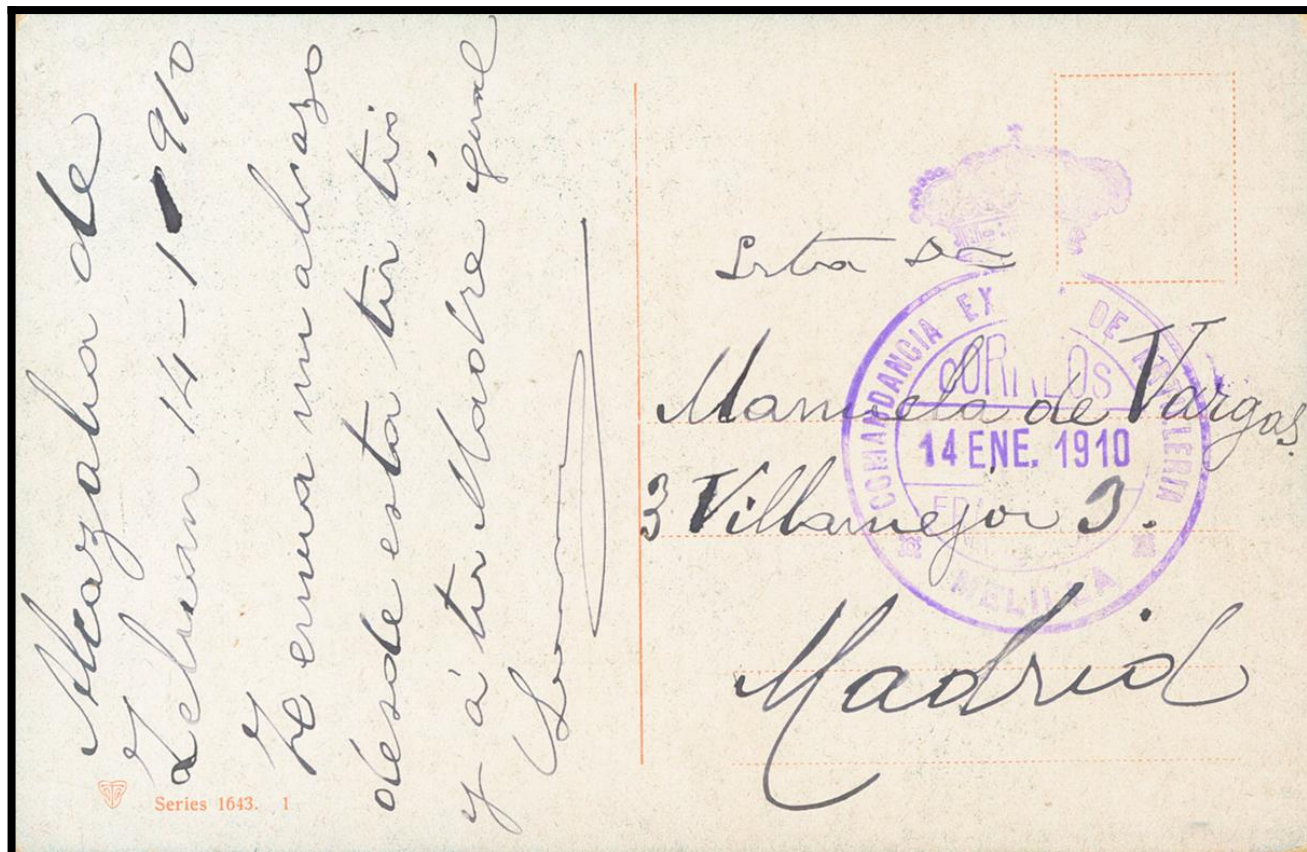 Alcazaba de
Zeluan 14-1-910
Te envia un abrazo
desde esta tu tio
y á tu Madre igual
Series 1643. 1
Srta Da
Manuela de Vargas
3 Villamejor 3.
Madrid
COMANDANCIA EX DE ARTILLERIA
CORREOS
14 ENE. 1910
MELILLA